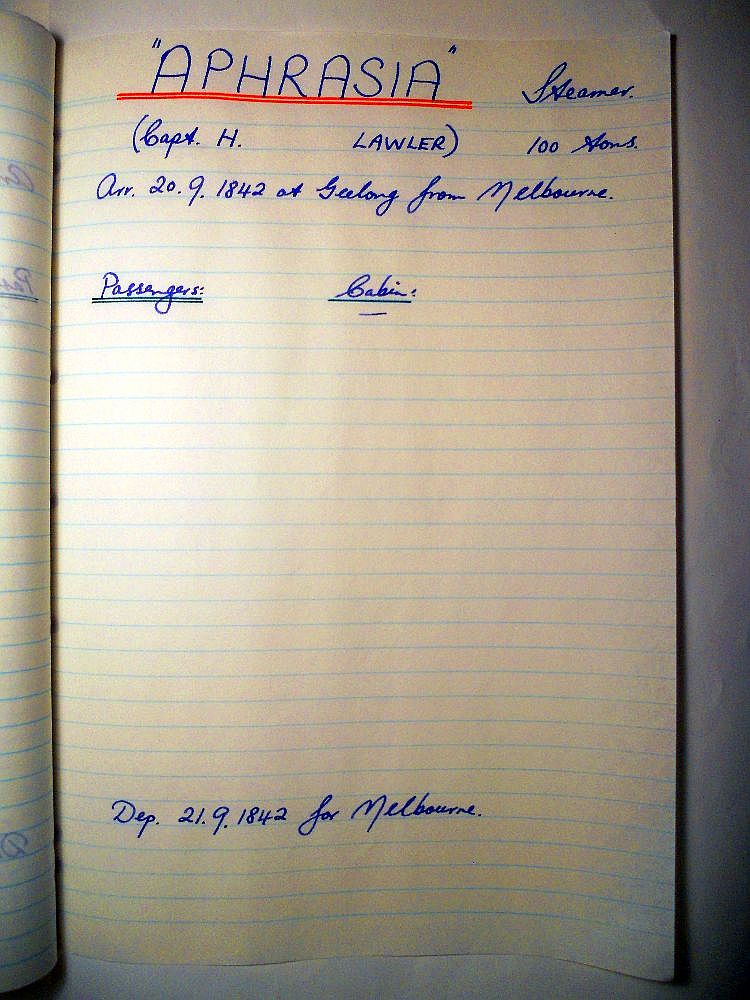 "APHRASIA" Steamer.
(Capt. H. LAWLER) 100 tons.
Arr. 20.9.1842 at Geelong from Melbourne.
Passengers: Cabin:
—
Dep. 21.9.1842 for Melbourne.